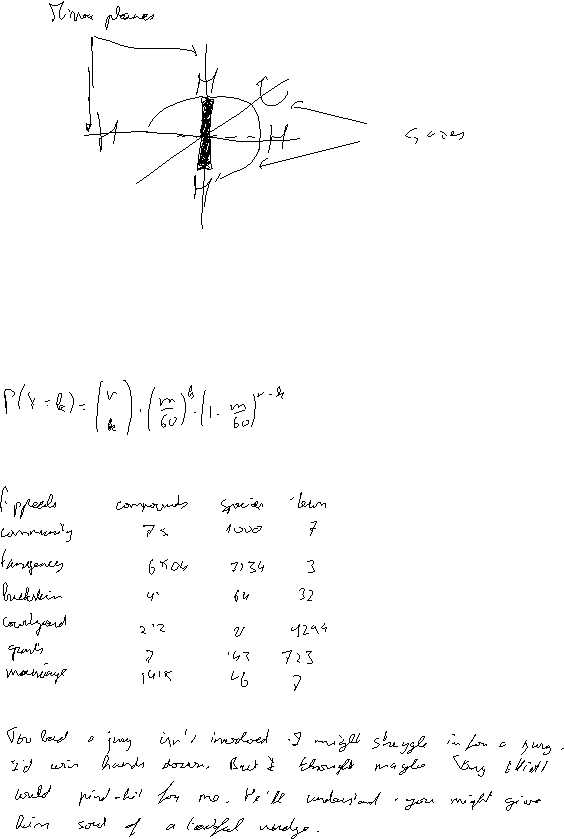 Mirror planes
H
C
H
H
H
axes
P(X = k) = (n k) · (m/60)^k · (1 - m/60)^{n-k}
appeals compounds species town
community 75 1000 7
tangences 6504 7134 3
buckstein 4' 64 32
courtyard 2'2 4294
grants 7 '43 723
marriage 1415 46 7
Too bad a jury isn't involved. I might struggle in for a jury.
I'd win hands down. But I thought maybe Tony Elliott
would pinch-hit for me. He'll understand. you might give
him sort of a tactful nudge.